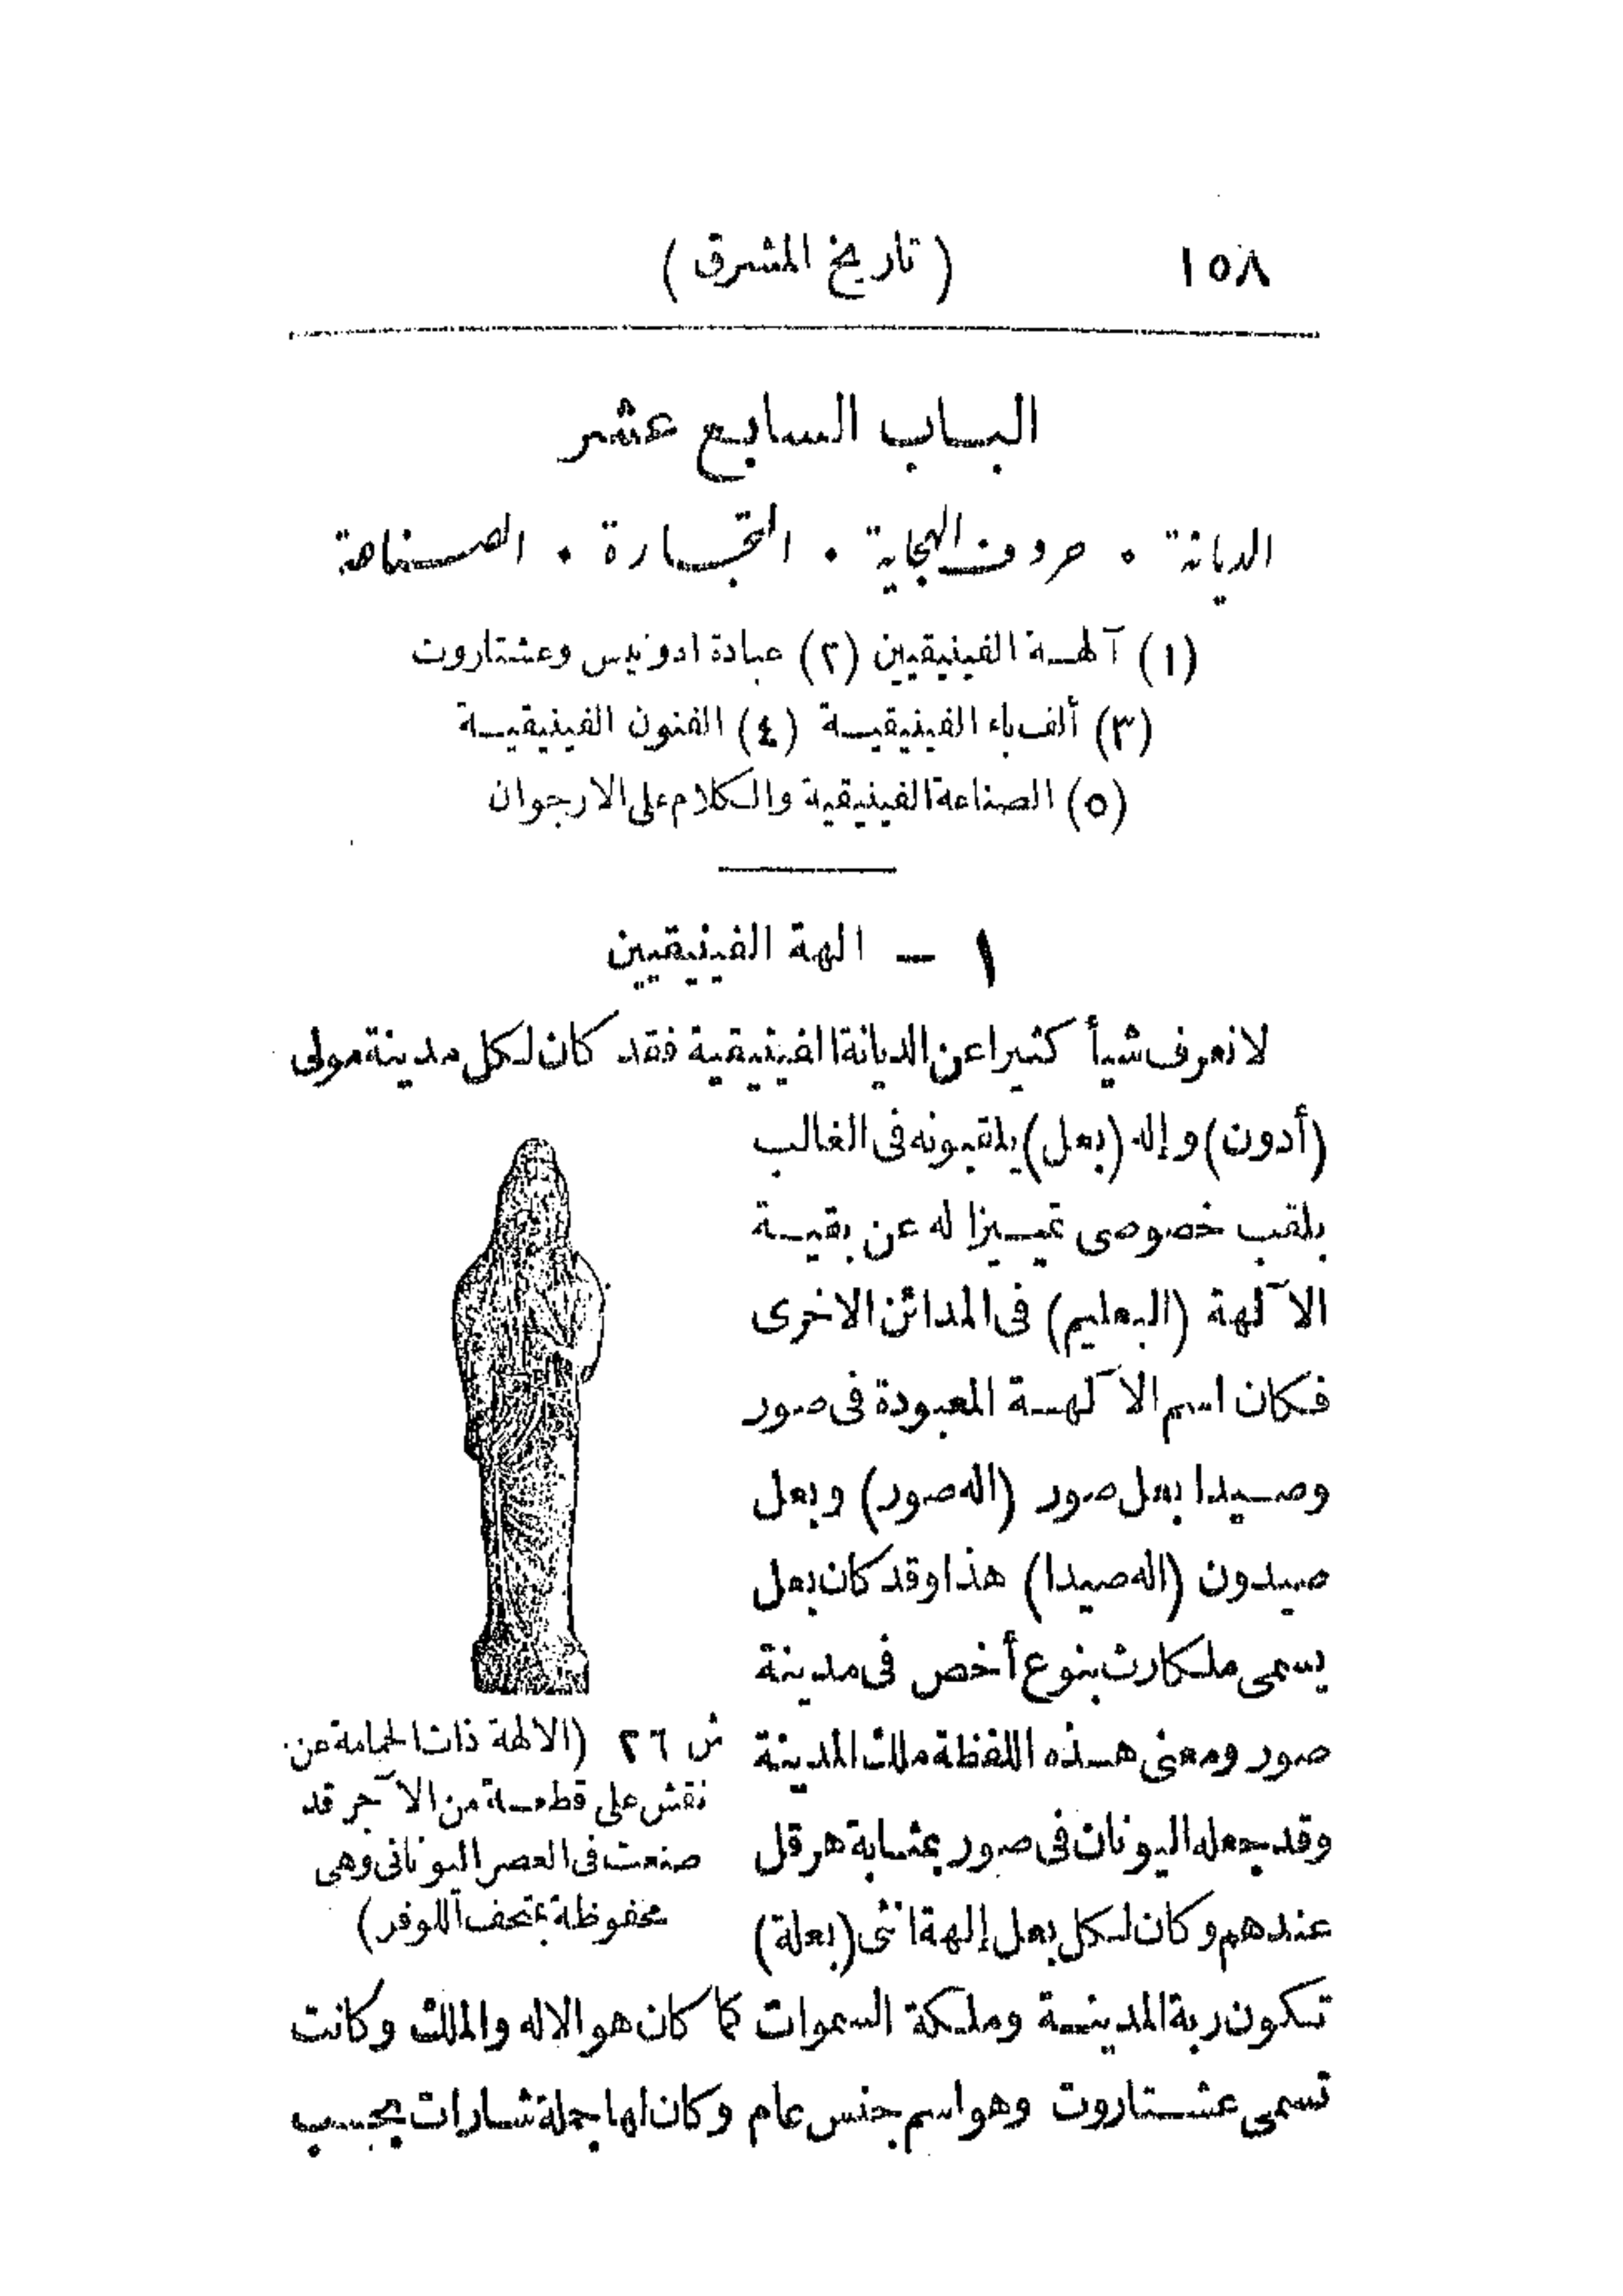 ١٥٨ (تاريخ المشرق)
الباب السابع عشر
الديانة . حروف الهجاية . التجارة . الصناعة
(١) آلهة الفينيقيين (٢) عبادة ادونيس وعشتاروت
(٣) ألف باء الفينيقية (٤) الفنون الفينيقية
(٥) الصناعة الفينيقية والكلام على الارجوان
١ — الهة الفينيقيين
لا نعرف شيأ كثيرا عن الديانة الفينيقية فقد كان لكل مدينة مولى
(أدون) وإله (بعل) يلقبونه فى الغالب
بلقب خصوصى تمييزا له عن بقية
الآلهة (البعليم) فى المدائن الاخرى
فكان اسم الآلهة المعبودة فى صور
وصيدا بعل صور (اله صور) وبعل
صيدون (اله صيدا) هذا وقد كان بعل
يسمى ملكارث بنوع أخص فى مدينة
صور ومعنى هذه اللفظة ملك المدينة
وقد جعله اليونان فى صور بمثابة هرقل
عندهم وكان لكل بعل إلهة انثى (بعلة)
ش ٢٦ (الالهة ذات الحمامة عن
نقش على قطعة من الآجر قد
صنعت فى العصر اليونانى وهى
محفوظة بمتحف اللوفر)
تكون ربة المدينة وملكة السموات كما كان هو الاله والملك وكانت
تسمى عشتاروت وهو اسم جنس عام وكان لها جملة شارات بحسب